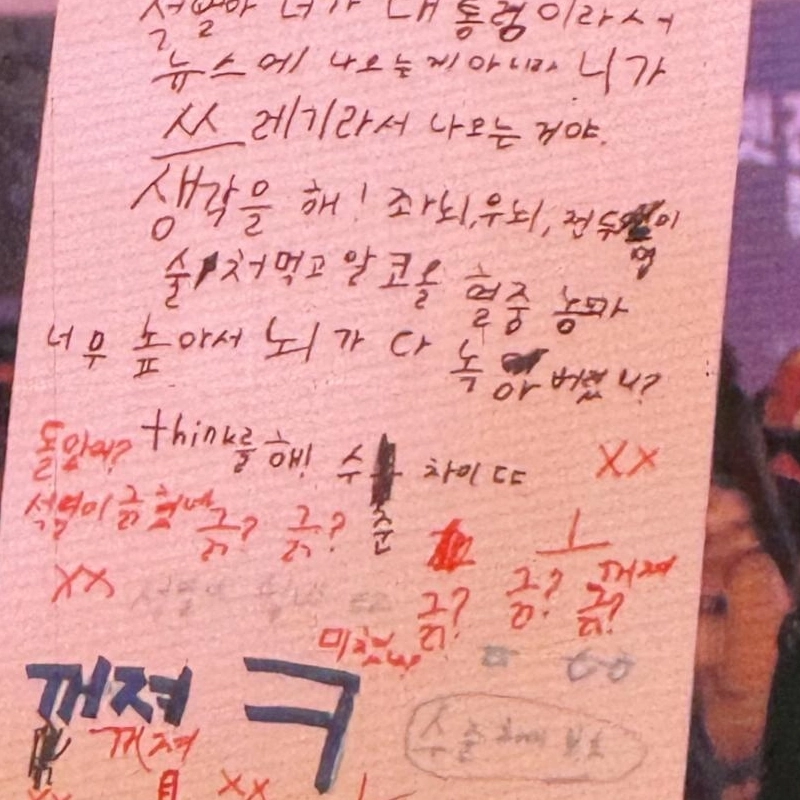 석열아 너가 대통령이라서
뉴스에 나오는게 아니라 니가
쓰레기라서 나오는 거야.
생각을 해! 좌뇌,우뇌, 전두엽이
술 처먹고 알코올 혈중 농도가
너무 높아서 뇌가 다 녹아버렸니?
돌았어? think를 해! 수준 차이 ㄸ XX
석열이 긁혔녜 긁? 긁?
XX 긁? 긁? 긁? 꺼져
미쳤냐
ㅠㅠ
꺼져 ㅋ
꺼져
XX